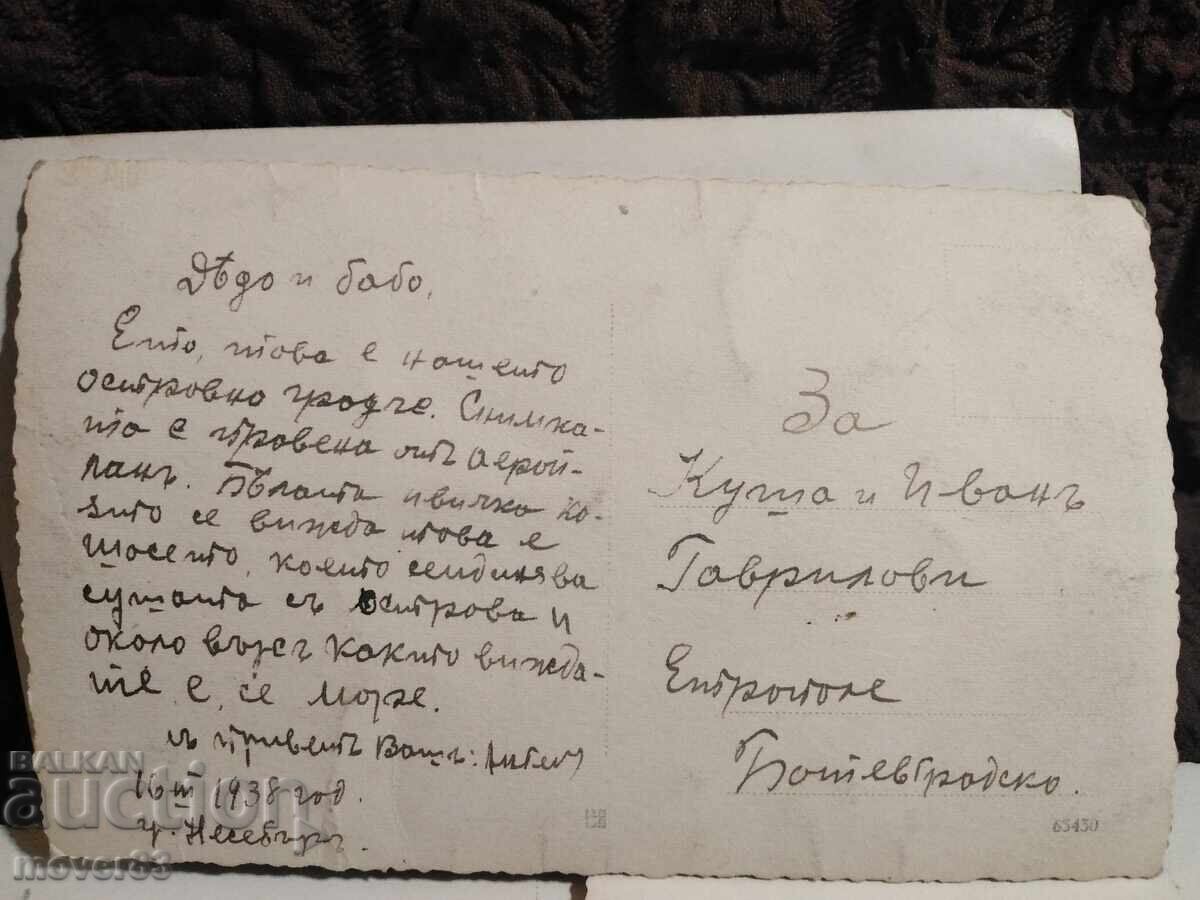 Дѣдо и бабо,
Ето, това е нашето
островно градче. Снимка-
та е правена отъ аероп-
ланъ. Бѣлата ивичка ко-
ято се вижда това е
шосето, което съединява
сушата съ острова и
около връхъ както вижда-
те е, се море.
съ приветъ Вашъ:
16 III 1938 год.
гр. Несебъръ.
За
Куша и Иванъ
Гаврилови
Етрополе
Ботевградско.
63430
BALKAN
auction
mover83